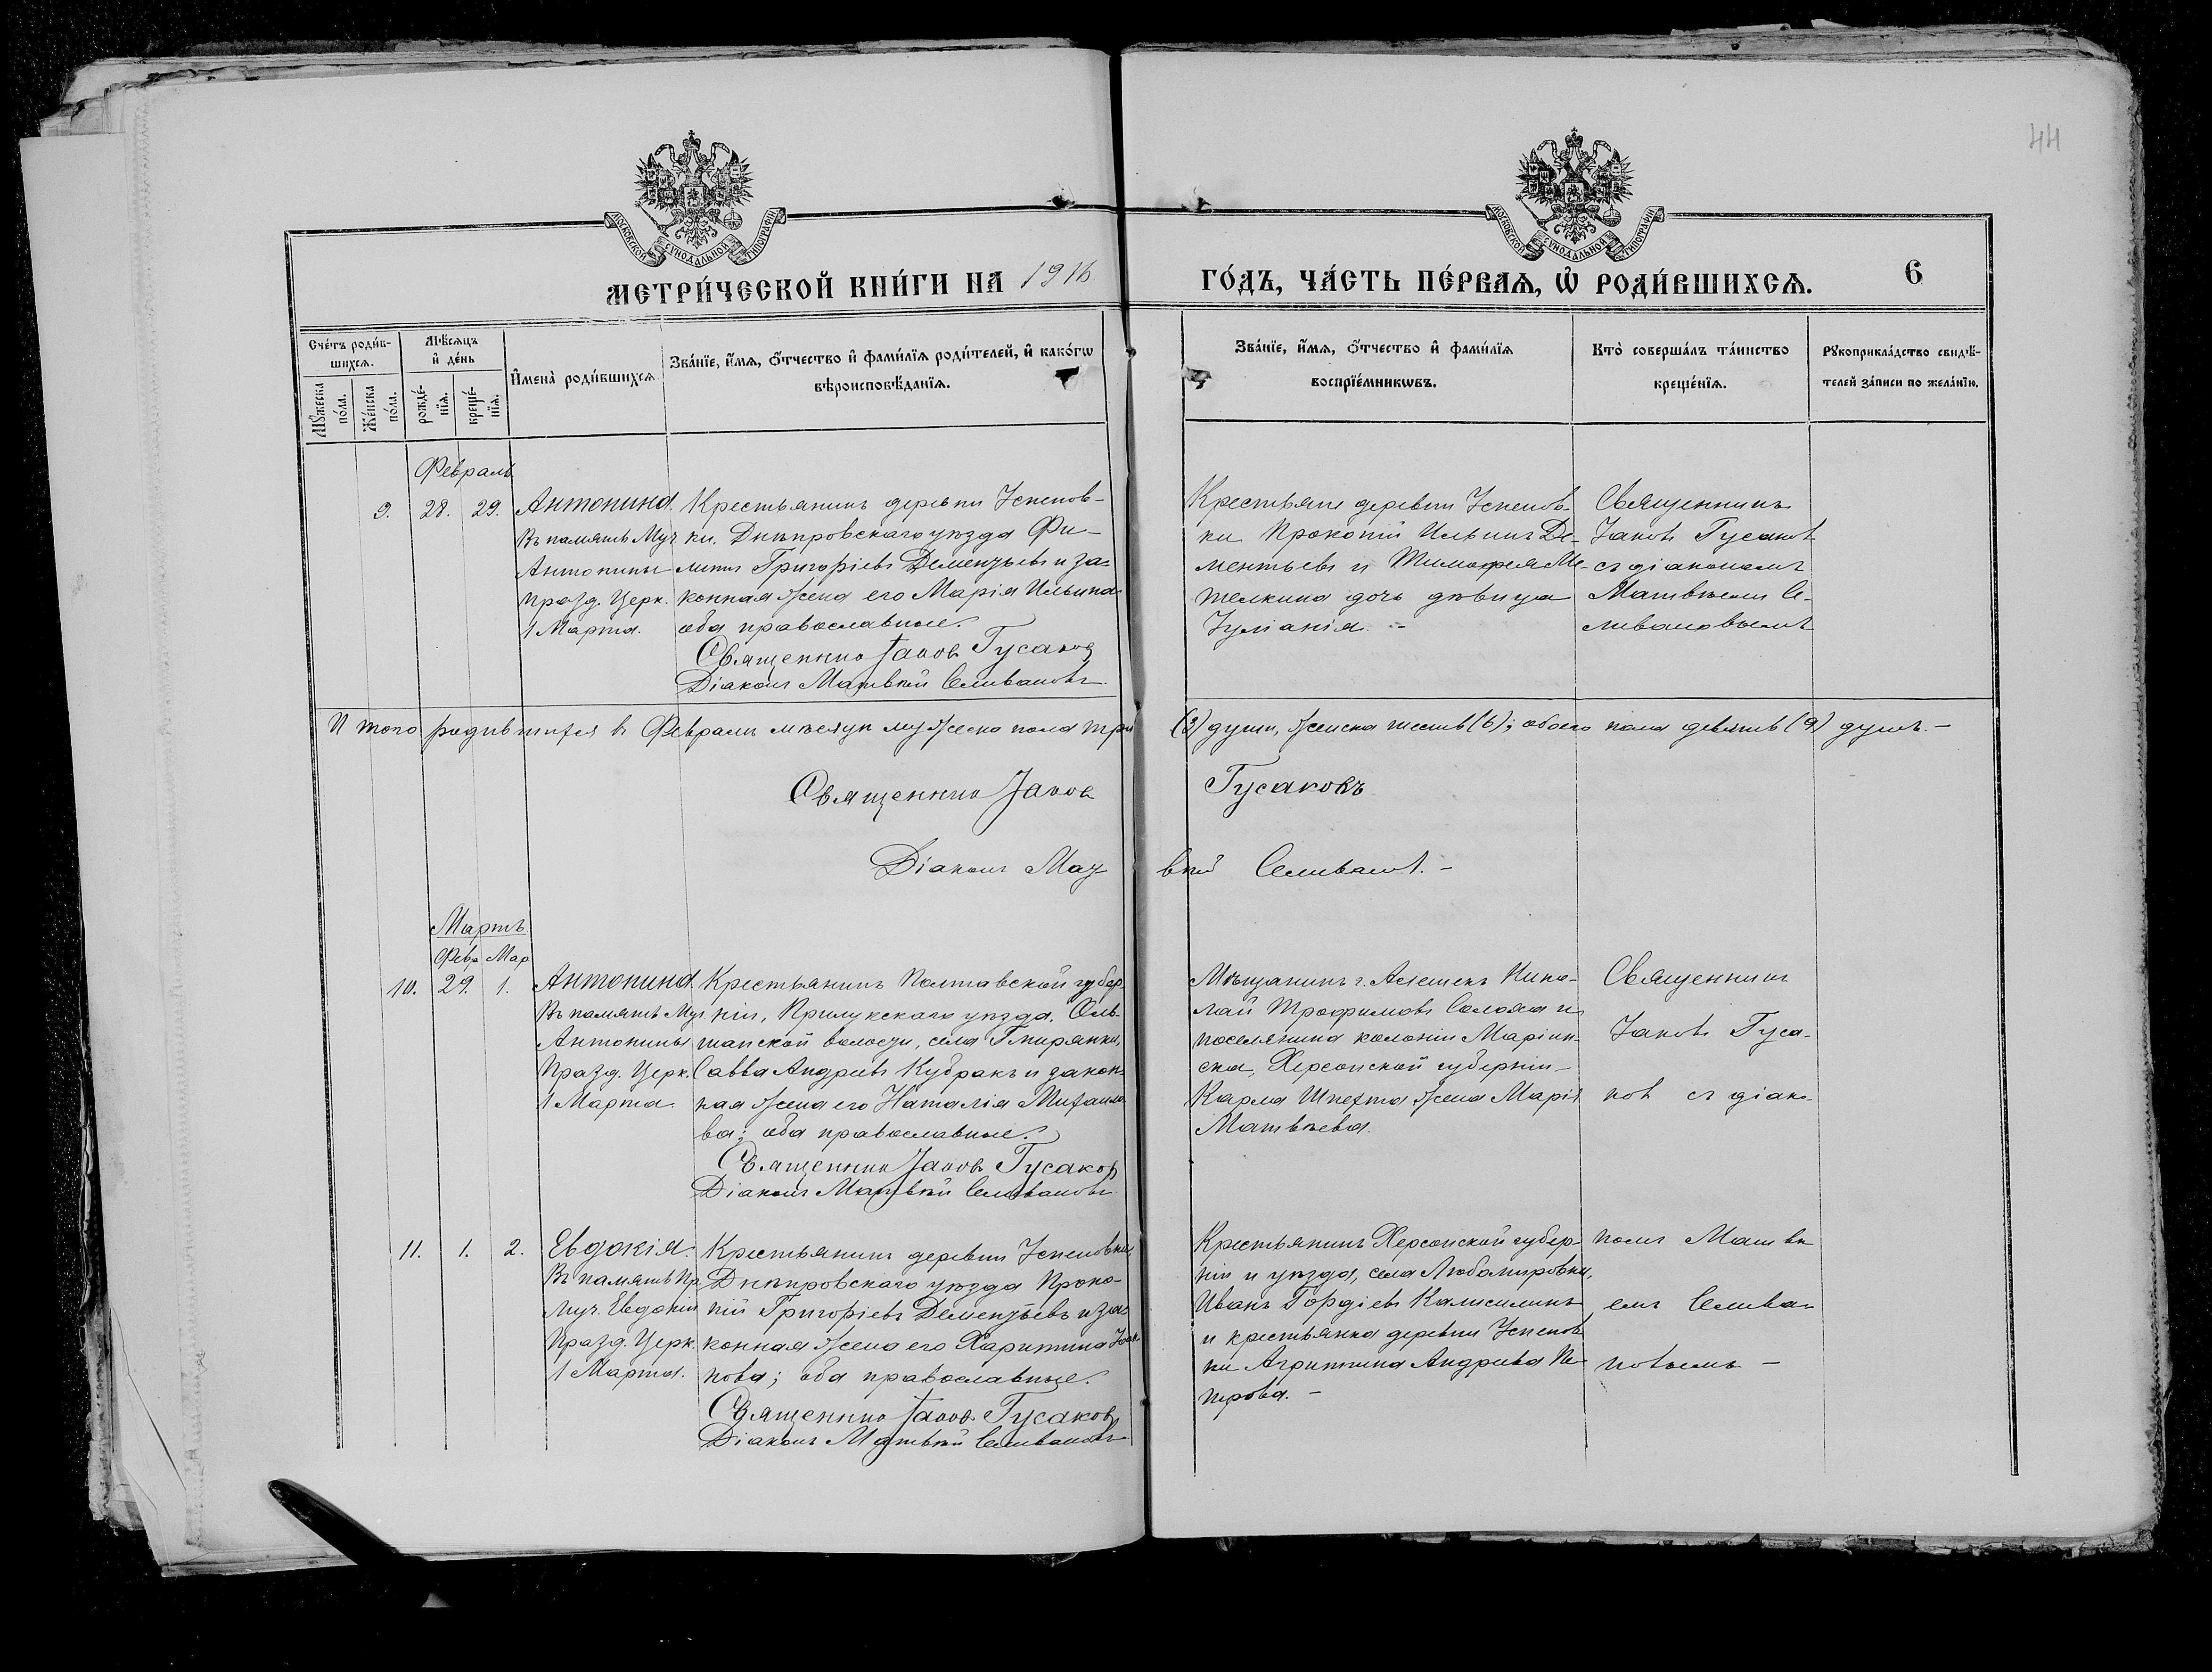 44
МОСКОВСКОЙ СѴНОДАЛЬНОЙ ТИПОГРАФІИ
МОСКОВСКОЙ СѴНОДАЛЬНОЙ ТИПОГРАФІИ
МЕТРИ́ЧЕСКОЙ КНИ́ГИ НА 1916 ГО́ДЪ, ЧА́СТЬ ПЕ́РВАѦ, Ѡ҆ РОДИ́ВШИХСѦ. 6
Сче́тъ роди́в-
шихся.
Мꙋ́жеска по́ла.
Же́нска по́ла.
Мѣ́сяцъ и҆ де́нь
рожде́-
нїя.
креще́-
нїя.
И҆мена̀ роди́вшихся
Зва́нїе, и҆́мя, ѻ҆́тчество и҆ фами́лїя роди́телей, и҆ како́гѡ
вѣроисповѣ́данїя.
Зва́нїе, и҆́мя, ѻ҆́тчество и҆ фами́лїя
воспрїе́мникѡвъ.
Кто̀ соверша́лъ та́инство
креще́нїя.
Рꙋкоприкла́дство свидѣ́-
телей за́писи по жела́нїю.
Февраль
9. 28. 29.
Антонина
Въ память Муч
Антонины
празд. Церк.
1 Марта.
Крестьянинъ деревни Успенов-
ки, Днѣпровскаго уѣзда Фи-
липпъ Григоріевъ Дементьевъ и за-
конная жена его Марія Ильина
оба православные.
Священникъ Іаковъ Гусаковъ
Діаконъ Матвѣй Селивановъ
Крестьяне деревни Успенов-
ки Прокопій Ильинъ Де-
ментьевъ и Тимофея Ме-
телкина дочь дѣвица
Іуліанія. -
Священникъ
Іаковъ Гусаковъ
съ діакономъ
Матвѣемъ Се-
ливановымъ
Итого родившихся въ Февралѣ мѣсяцѣ мужеска пола три (3) души, женска шесть (6); обоего пола девять (9) душъ. -
Священникъ Іаковъ Гусаковъ
Діаконъ Матвѣй Селивановъ. -
Мартъ
Февр. Мар.
10. 29. 1.
Антонина
Въ память Муч.
Антонины
Празд. Церк.
1 Марта.
Крестьянинъ Полтавской губер-
ніи, Прилукскаго уѣзда, Оль-
шанской волости, села Гнирянки,
Савва Андреевъ Кубракъ и закон-
ная жена его Наталія Михаило-
ва; оба православные.
Священникъ Іаковъ Гусаковъ
Діаконъ Матвѣй Селивановъ
Мѣщанинъ г. Алешекъ Нико-
лай Трофимовъ Солоха и
поселянина колоніи Маріин-
ска, Херсонской губерніи
Карла Шпехта жена Марія
Матвѣева.
Священникъ
Іаковъ Гуса-
ковъ съ діако-
11. 1. 2.
Евдокія.
Въ память Пр.
муч. Евдокіи
Празд. Церк.
1 Марта.
Крестьянинъ деревни Успеновки
Днѣпровскаго уѣзда Проко-
пій Григорієвъ Дементьевъ и за-
конная жена его Харитина Іоак-
нова; оба православные.
Священникъ Іаковъ Гусаковъ
Діаконъ Матвѣй Селивановъ
Крестьянинъ Херсонской губер-
ніи и уѣзда, села Любомировки,
Иванъ Гордіевъ
и крестьянка деревни Успенов-
ки Агриппина Андреева Пе-
трова. -
номъ Матвѣ-
емъ Селива-
новымъ -